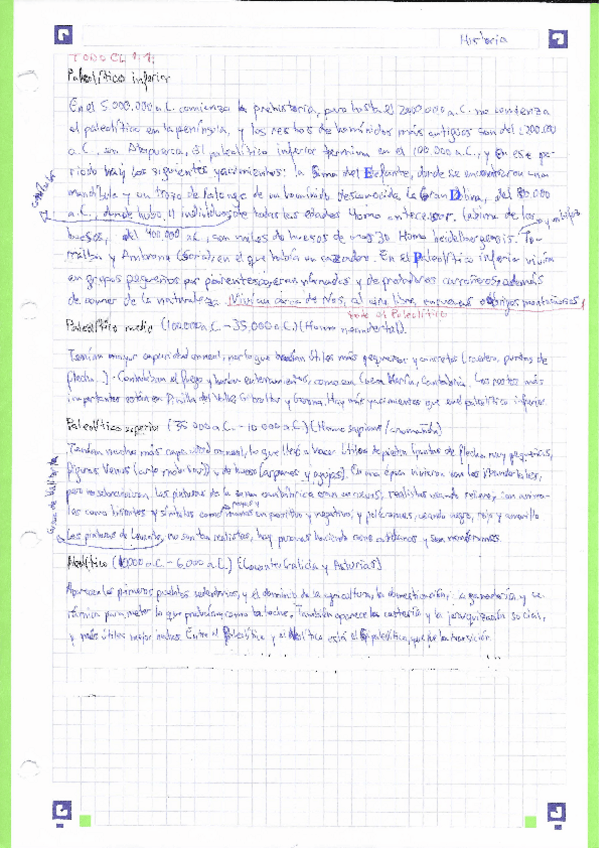 Historia
TODO EL 1.1.
Paleolítico inferior
En el 5.000.000 a.C. comienza la prehistoria, pero hasta el 2000000 a.C. no comienza
el paleolítico en la península, y los restos de homínidos más antiguos son del 1200.000
a.C., son Atapuerca. El paleolítico inferior termina en el 100.000 a.C., y en ese pe-
riodo hay los siguientes yacimientos: la Sima del Elefante, donde se encontraron una
mandíbula y un trozo de falange de un homínido desconocido, la Gran Dolina, del
a.C., donde hubo 11 individuos de todas las edades Homo antecessor. La Sima de los
huesos, del 400.000 a.C., son miles de huesos de unos 30 Homo heidelbergensis. To-
rralba y Ambrona (Soria), en el que había un cazadero. En el Paleolítico inferior vivían
en grupos pequeños por parientes, eran nómadas y depredadores carroñeros, además
de comer de la naturaleza. Vivían cerca de ríos, al aire libre, en cuevas o abrigos montañosos
todo el Paleolítico
Paleolítico medio (100.000 a.C. - 35.000 a.C.) (Homo neandertal).
Tenían mayor capacidad craneal, por lo que hacían útiles más pequeños y concretos (raedera, puntas de
flecha...). Controlaban el fuego y hacían enterramientos, como en Cueva Morín, Cantabria. Los restos más
importantes están en Pinilla del Valle, Gibraltar y Girona. Hay más yacimientos que en el paleolítico inferior.
Paleolítico superior (35.000 a.C. - 10.000 a.C.) (Homo sapiens/cromañón)
Tenían mucha más capacidad craneal, lo que llevó a hacer útiles de piedra (puntas de flecha muy pequeñas,
figuras Venus (arte mobiliar)) y de hueso (arpones y agujas). En una época vivieron con los Neandertales,
pero no sobrevivieron. Las pinturas de la zona cantábrica eran en cuevas, realistas usando relieve, con anima-
les como bisontes y símbolos como manos en positivo y negativo, y policromas, usando negro, rojo y amarillo
Las pinturas de Levante, no son tan realistas, hay personas haciendo cosas cotidianas y son monocromas.
Neolítico (6000 a.C. - 6.000 a.C.) (Levante, Galicia y Asturias)
Aparecen los primeros pueblos sedentarios, y el dominio de la agricultura, la domesticación, la ganadería y ce-
rámica para meter lo que producían como la leche. También aparece la cestería y la jerarquización social,
y más útiles mejor hechos. Entre el Paleolítico y el Neolítico está el Epipaleolítico, que fue la transición.